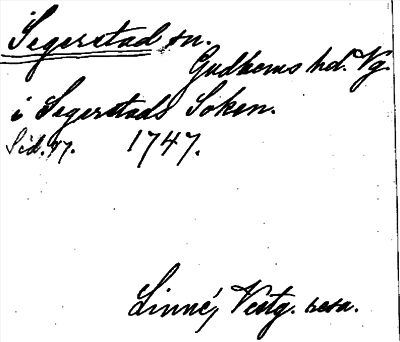 Segerstad sn.
Gudhems hd. Vg.
i Segerstads Soken.
Sid. 77. 1747.
Linné, Vestg. resa.